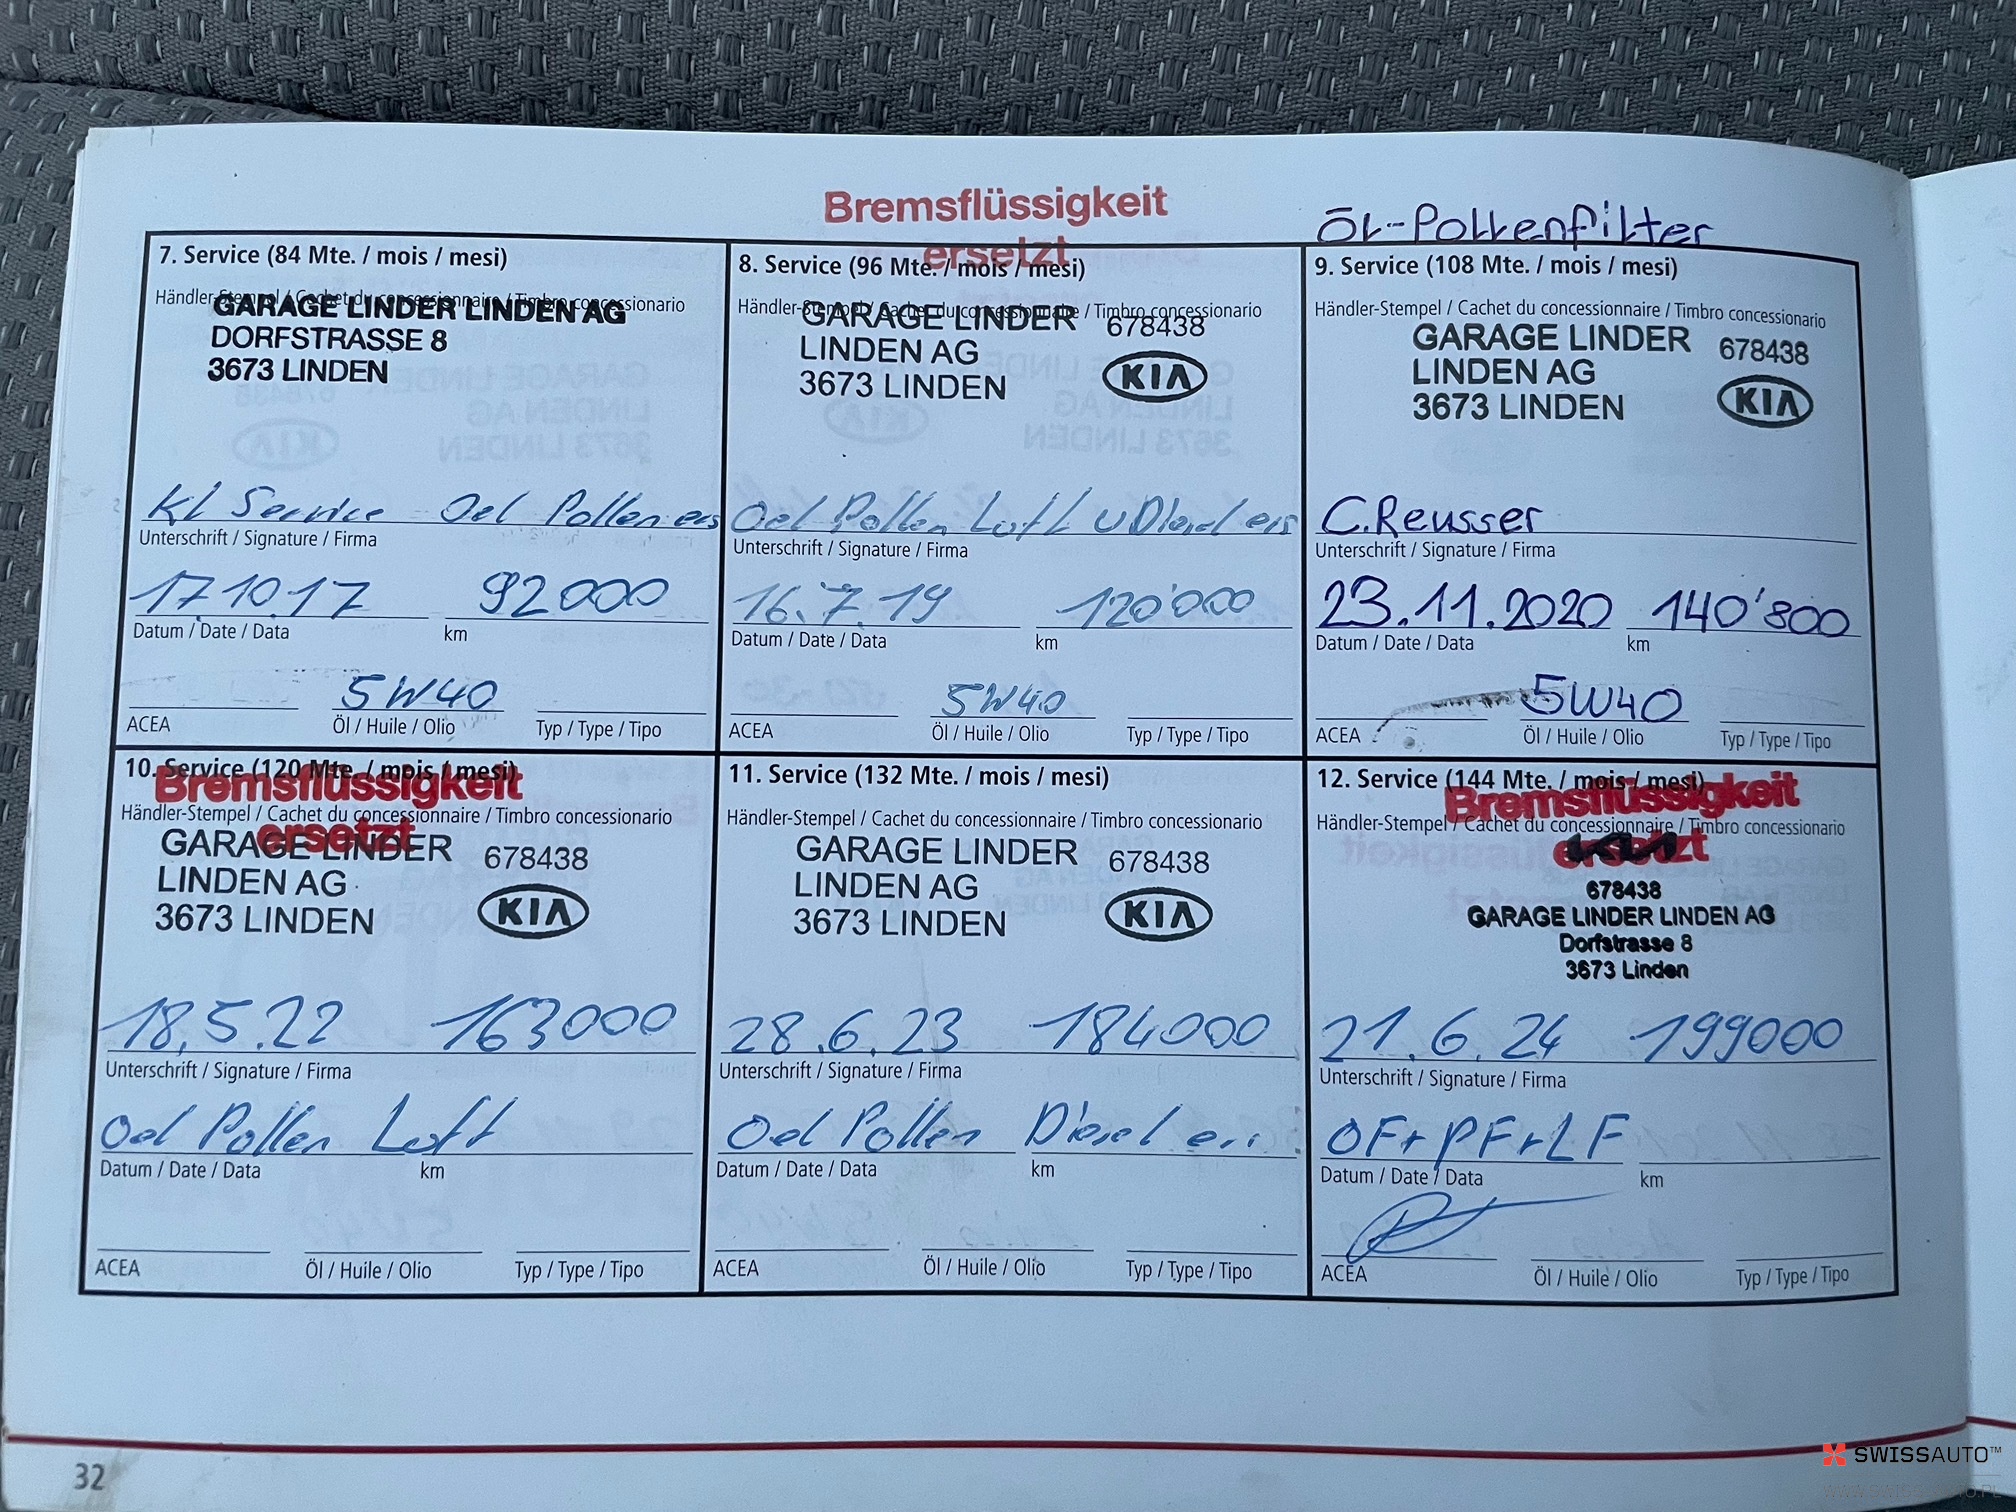 Bremsflüssigkeit
ersetzt
Öl-Pollenfilter
7. Service (84 Mte. / mois / mesi)
Händler-Stempel / Cachet du concessionnaire / Timbro concessionario
GARAGE LINDER LINDEN AG
DORFSTRASSE 8
3673 LINDEN
Kl Service Oel Pollen ers
Unterschrift / Signature / Firma
17.10.17 92000
Datum / Date / Data km
5W40
ACEA Öl / Huile / Olio Typ / Type / Tipo
8. Service (96 Mte. / mois / mesi)
Händler-Stempel / Cachet du concessionnaire / Timbro concessionario
GARAGE LINDER 678438
LINDEN AG
3673 LINDEN KIA
Oel Pollen Luft u Diesel ers
Unterschrift / Signature / Firma
16.7.19 120'000
Datum / Date / Data km
5W40
ACEA Öl / Huile / Olio Typ / Type / Tipo
9. Service (108 Mte. / mois / mesi)
Händler-Stempel / Cachet du concessionnaire / Timbro concessionario
GARAGE LINDER 678438
LINDEN AG
3673 LINDEN KIA
C.Reusser
Unterschrift / Signature / Firma
23.11.2020 140'800
Datum / Date / Data km
5W40
ACEA Öl / Huile / Olio Typ / Type / Tipo
10. Service (120 Mte. / mois / mesi)
Bremsflüssigkeit
Händler-Stempel / Cachet du concessionnaire / Timbro concessionario
ersetzt
GARAGE LINDER 678438
LINDEN AG
3673 LINDEN KIA
18.5.22 163000
Unterschrift / Signature / Firma
Oel Pollen Luft
Datum / Date / Data km
ACEA Öl / Huile / Olio Typ / Type / Tipo
11. Service (132 Mte. / mois / mesi)
Händler-Stempel / Cachet du concessionnaire / Timbro concessionario
GARAGE LINDER 678438
LINDEN AG
3673 LINDEN KIA
28.6.23 184000
Unterschrift / Signature / Firma
Oel Pollen Diesel
Datum / Date / Data km
ACEA Öl / Huile / Olio Typ / Type / Tipo
12. Service (144 Mte. / mois / mesi)
Bremsflüssigkeit
Händler-Stempel / Cachet du concessionnaire / Timbro concessionario
ersetzt
678438
GARAGE LINDER LINDEN AG
Dorfstrasse 8
3673 Linden
21.6.24 199000
Unterschrift / Signature / Firma
OF+PF+LF
Datum / Date / Data km
ACEA Öl / Huile / Olio Typ / Type / Tipo
32
SWISSAUTO™